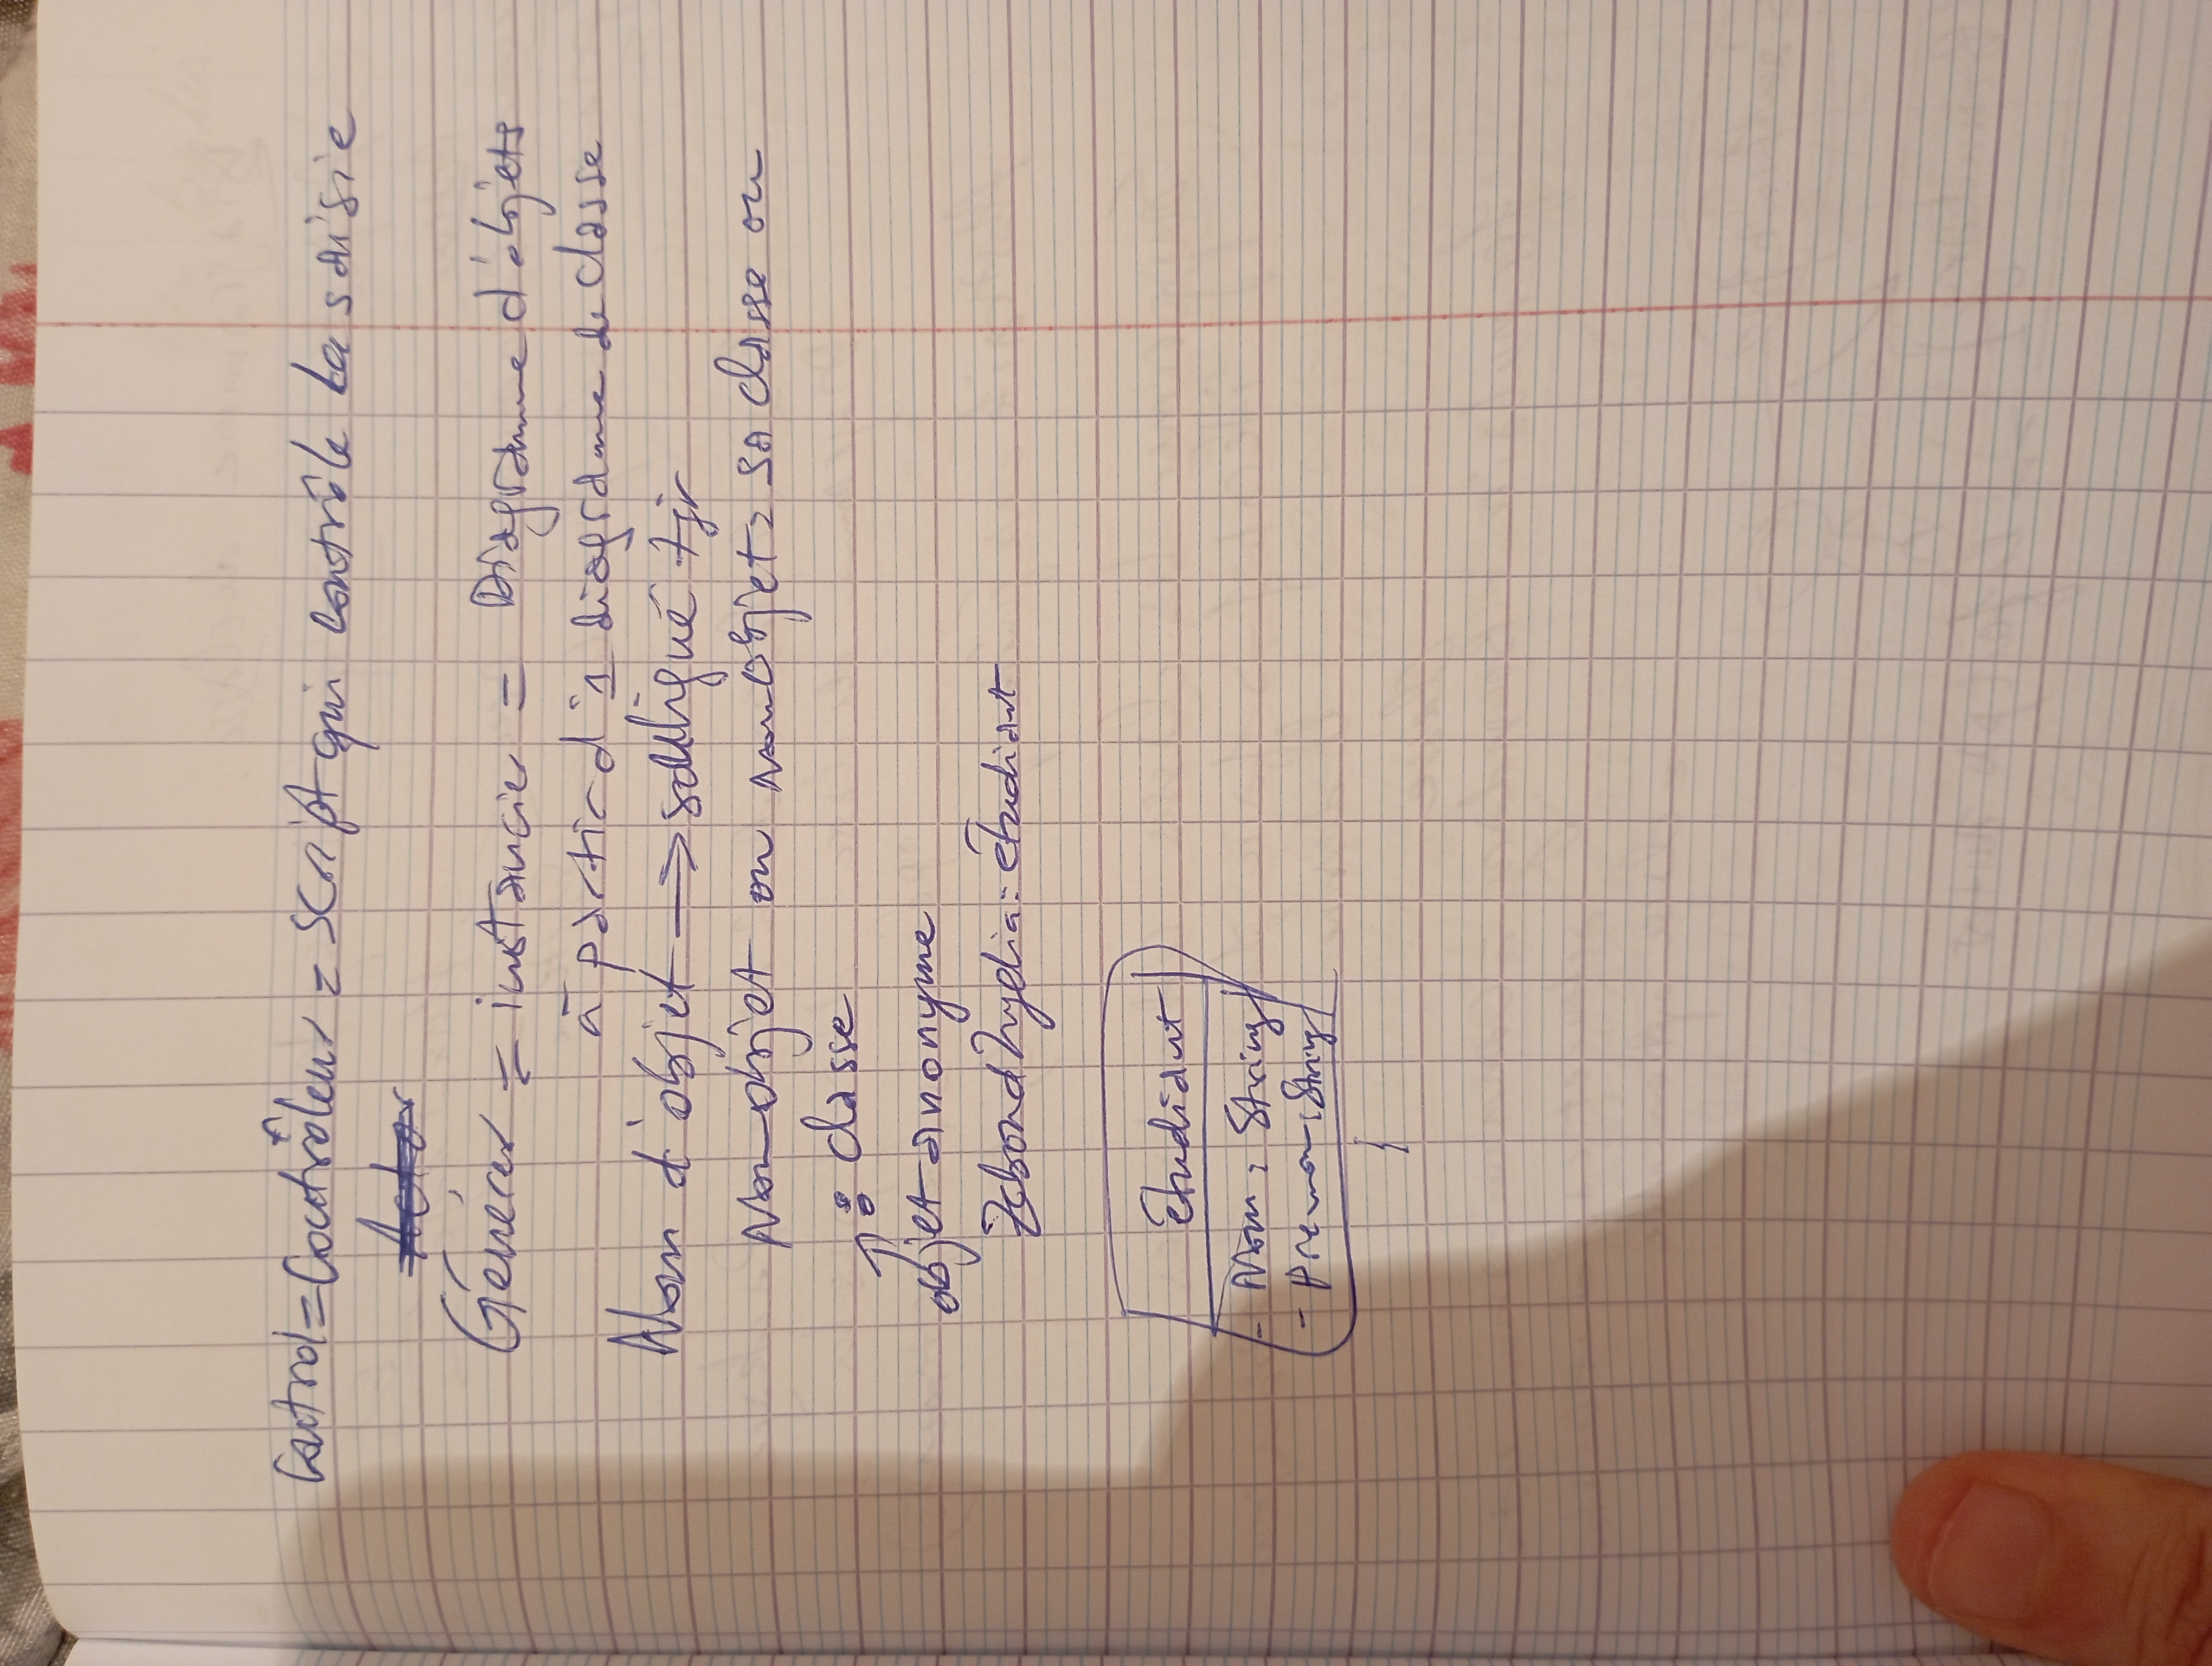 Control = Contrôleur = script qui contrôle la saisie
Actor
Générer = instancier = Diagramme d'objets
à partir d'1 diagramme de classe
Nom d'objet → souligné tjr
Nom objet ou nom objet : sa classe ou
: classe
objet anonyme
Lydia : étudiant
étudiant
- Nom : String
- Prenom : String
1